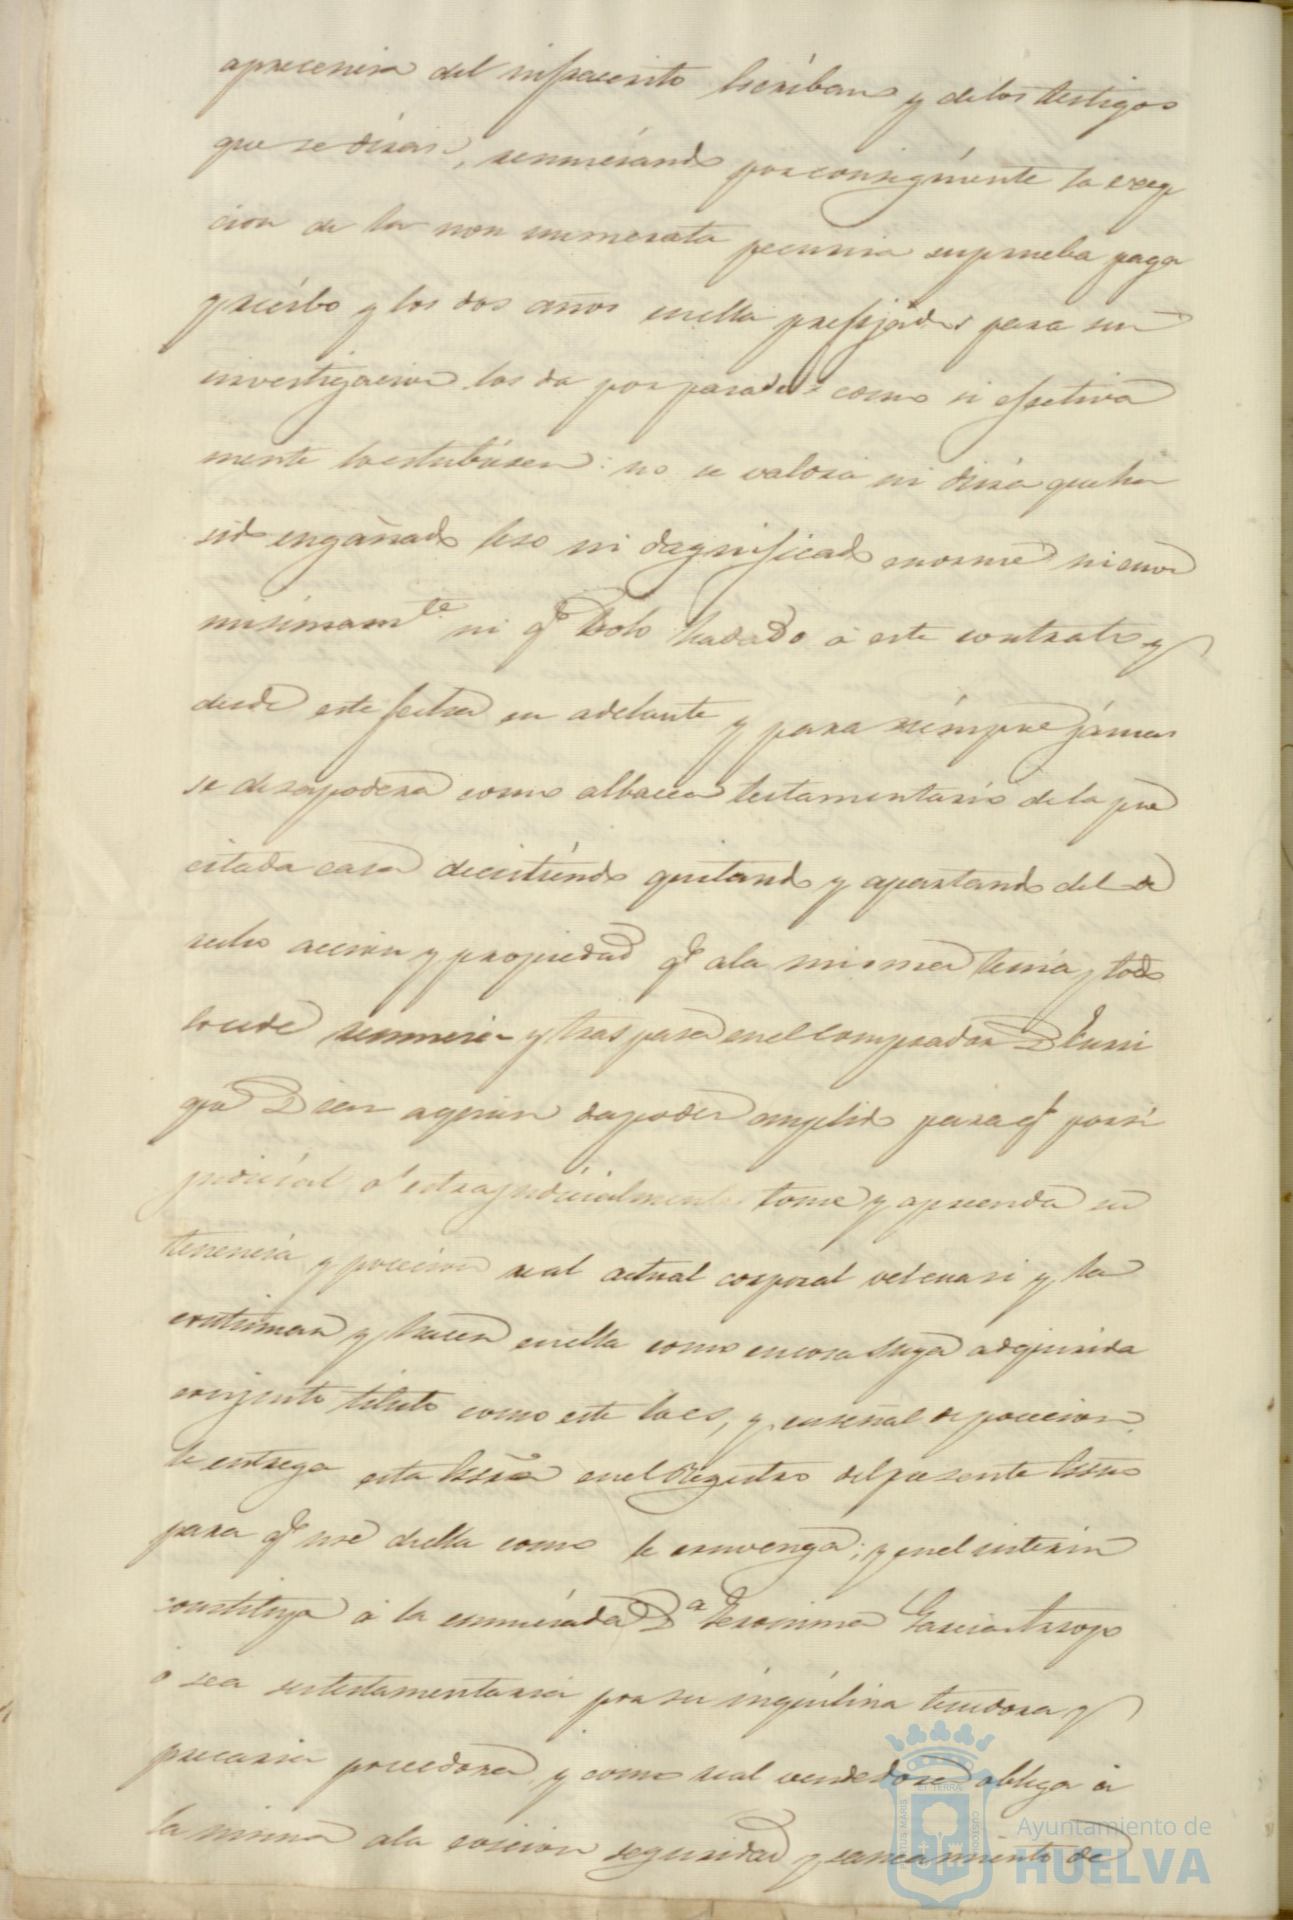 apresencia del infraescrito Escribano y delos testigos
que se dirán, renunciando por consiguiente la excep
cion de la non numerata pecunia suprueba paga
y recibo y los dos años en ella prefijados para su
investigacion los da por pasados como si efectiva
mente lo estubiesen: no se valdrá ni dirá que ha
sido engañado leso ni dagnificado enorme ni enor
misimamte. ni qe. Dolo hadado á este contrato y
desde este fecha en adelante y para siempre jámas
se desapodera como albacea testamentario dela pre
citada casa decistiendo quitando y apartando del de
recho accion y propiedad qe. ala misma tenia, y todo
lo cede renuncia y traspasa en el Comprador Dn. Enri
que Diaz aquien dapoder amplio para qe. por si
judicial ó extrajudicialmente tome y aprenda su
tenencia y posecion real actual corporal velcuasi y la
continuar y hacer en ella como encosa suya adquirida
conjusto titulo como este lo es, y enseñal de posecion
le entrega esta Essra en el Registro del presente Essno
para qe. use de ella como le convenga; y en el interin
constituye á la enunciada Da. Geronima Garcia Arroyo
ó sea sutestamentaria por su inquilina tenedora y
precaria poseedora y como real vendedora obliga á
la misma ala eviccion seguridad y saneamiento de
Ayuntamiento de
HUELVA